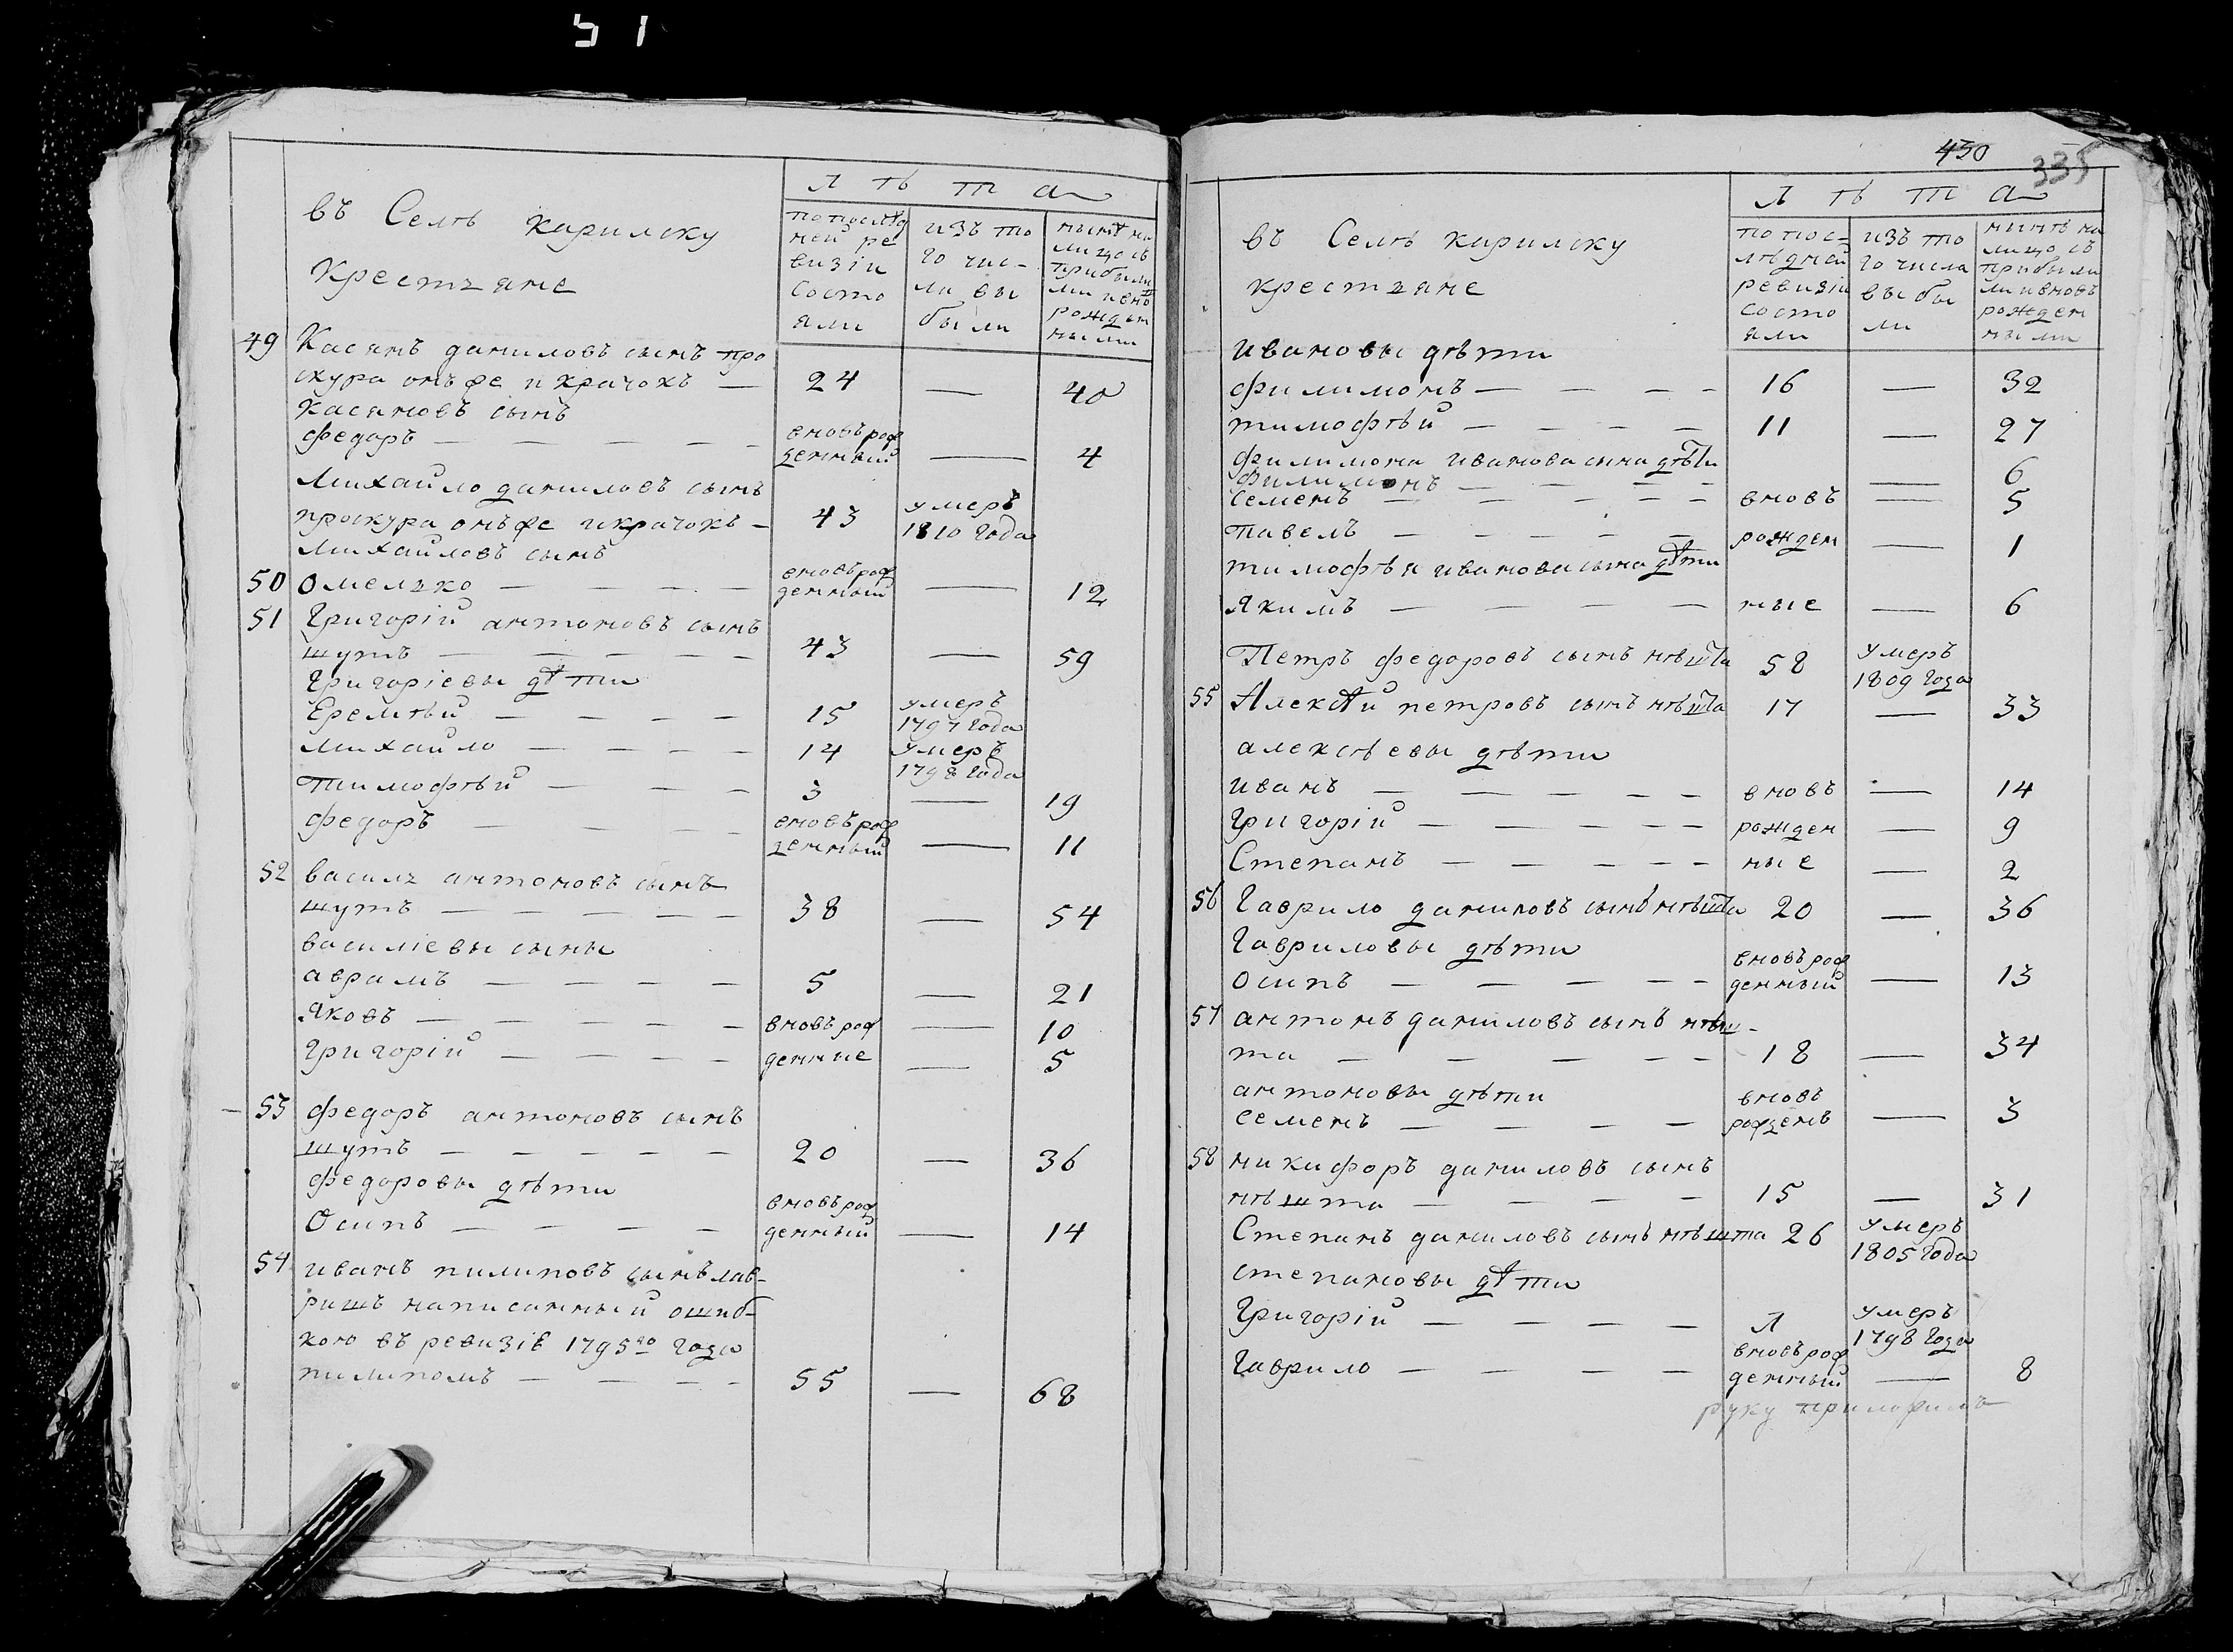 51
Л Ѣ Т А
въ Селѣ кирилску
Крестяне
по послѣд
ней ре
визіи
состо
яли
изъ то
го чис-
ла вы
были
нынѣ на
лицо съ
прибылы
ми и вно
рожден
ными
49 Касянъ даниловъ сынъ про
скура онъ же и крачокъ — 24 — 40
Касяновъ сынъ
федоръ — — — — — вновърож
денный — 4
Михайло даниловъ сынъ
проскура онъ же и крачокъ — 43 умеръ
1810 года
Михайловъ сынъ
50 Омелко — — — — вновърож
денный — 12
51 Григорій антоновъ сынъ
шутъ — — — — — 43 — 59
Григоріевы дѣти
Еремѣй — — — — 15 умеръ
1797 года
михайло — — — — 14 умеръ
1798 года
тимофѣй — — — 3 — 19
федоръ — — — — вновърож
денный — 11
52 василь антоновъ сынъ
шутъ — — — — — 38 — 54
василіевы сыны
аврамъ — — — — 5 — 21
Яковъ — — — — — вновърож — 10
Григорій — — — — денние — 5
53 федоръ антоновъ сынъ
шутъ — — — — — 20 — 36
федоровы дѣти
Осипъ — — — — вновърож
денный — 14
54 иванъ пилиповъ сынъ лав-
ришъ написанный ошиб-
кою въ ревизіѣ 1795го года
пилипомъ — — — — 55 — 68
450
335
Л Ѣ Т А
въ Селѣ кирилску
крестяне
по пос-
лѣдней
ревизіи
состо
яли
изъ то
го числа
выбы
ли
нынѣ на
лицо съ
прибылы
ми и вновъ
рожден
ными
ивановы дѣти
филимонъ — — — — 16 — 32
тимофѣй — — — — 11 — 27
филимона иванова сына дѣти
филимонъ — — — — — 6
семенъ — — — — — вновъ — 5
павелъ — — — — — рожден — 1
тимофѣя иванова сына дѣти
Якимъ — — — — ные — 6
Петръ федоровъ сынъ нѣшта 58 умеръ
1809 года
55 Алексѣй петровъ сынъ нѣшта 17 — 33
алексѣевы дѣти
иванъ — — — — — вновъ — 14
Григорій — — — — — рожден — 9
Степанъ — — — — — ные — 2
56 Гаврило даниловъ сынъ нѣшта 20 — 36
Гавриловы дѣти
осипъ — — — — — вновърож
денный — 13
57 антонъ даниловъ сынъ нѣш-
та — — — — — 18 — 34
антоновы дѣти
семенъ — — — — вновъ
рожденъ — 3
58 никифоръ даниловъ сынъ
нѣшта — — — — 15 — 31
Степанъ даниловъ сынъ нѣшта 26 умеръ
1805 года
степановы дѣти
Григорій — — — — Л умеръ
1798 года
Гаврило — — — — вновърож
денный — 8
руку приложилъ